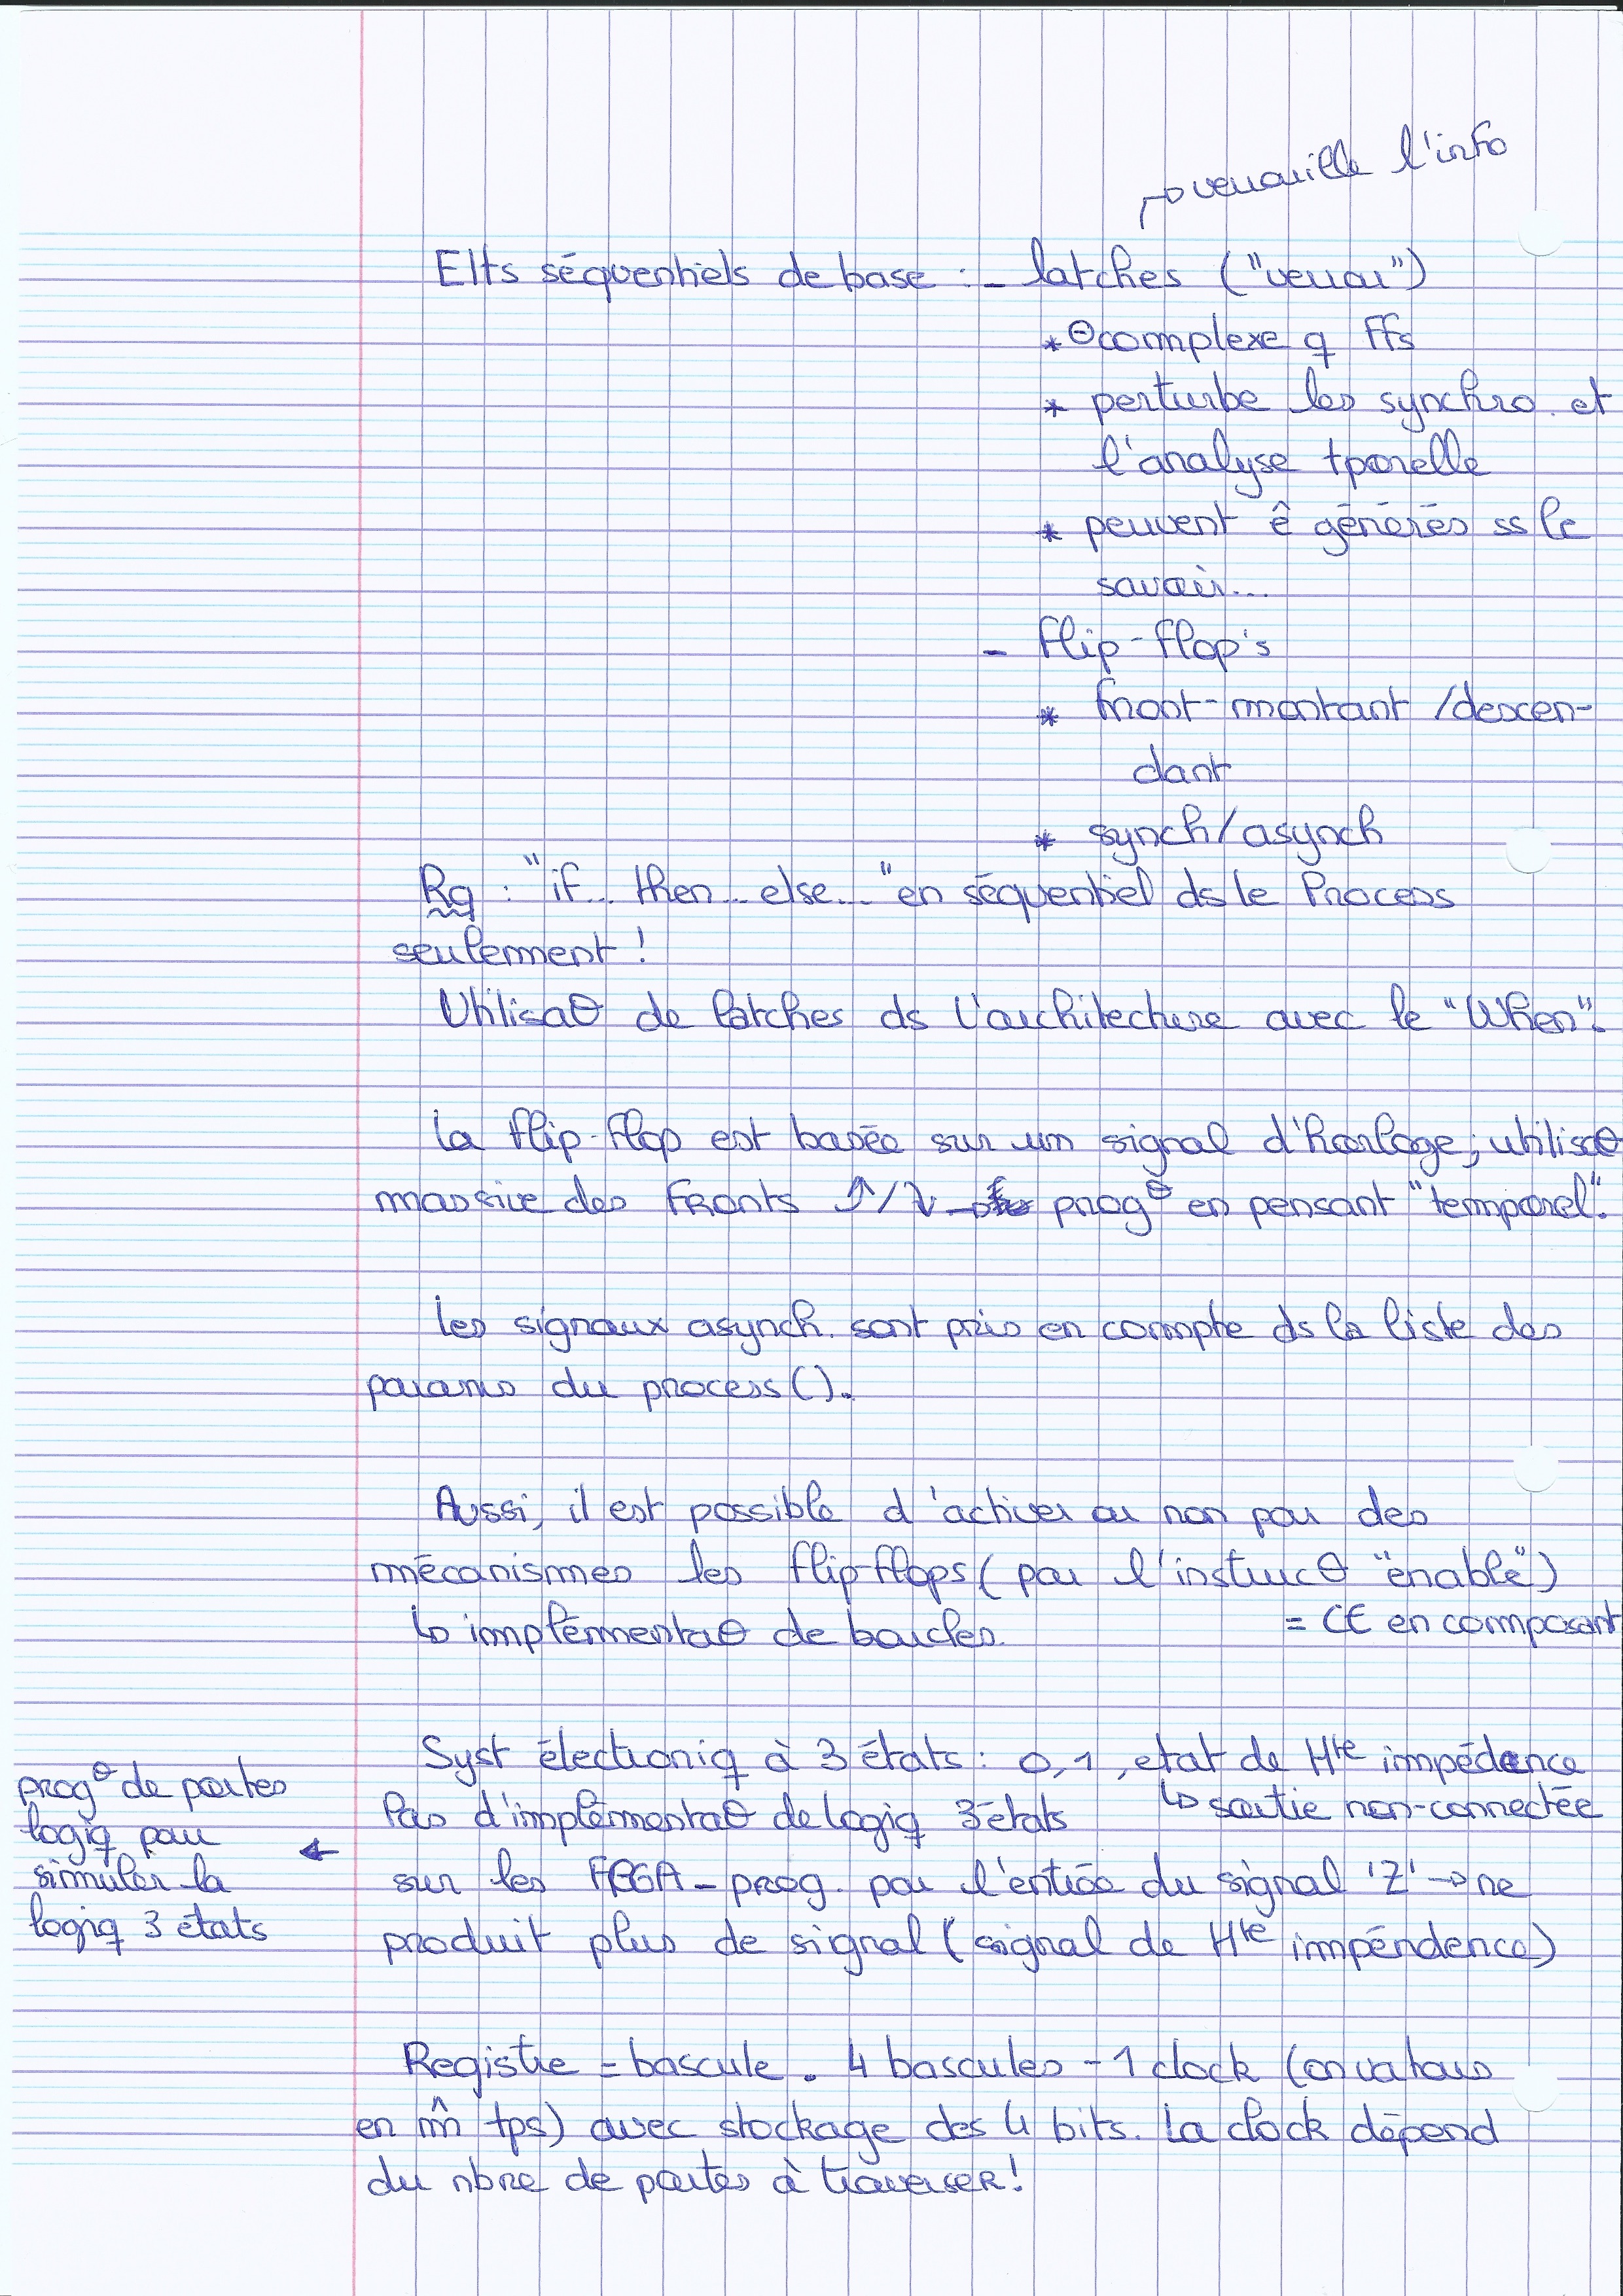 ↳ verrouille l'info
Elts séquentiels de base : - latches ("verrou")
* ⊖ complexe q FFs
* perturbe les synchro. et
l'analyse tporelle
* peuvent ê générés ss le
savoir...
- flip-flop's
* front-montant /descen-
dant
* synch/asynch
Rq : "if... then... else..." en séquentiel ds le Process
seulement !
Utilisaθ de latches ds l'architecture avec le "When".
La flip-flop est basée sur un signal d'horloge; utilisaθ
massive des FRonts ↑/↓ → progθ en pensant "temporel".
Les signaux asynch. sont pris en compte ds la liste des
params du process().
Aussi, il est possible d'activer ou non par des
mécanismes les flip-flops (par l'instrucθ "enable")
↳ implémentaθ de boucles. = CE en composant
Syst électroniq à 3 états : 0, 1, etat de Hte impédence
↳ sortie non-connectée
Pas d'implémentaθ de logiq 3 états
sur les FPGA - prog. par l'entrée du signal 'Z' → ne
produit plus de signal (signal de Hte impéndence)
progθ de portes
logiq pour ←
simuler la
logiq 3 états
Registre = bascule. 4 bascules - 1 clock (on va tous
en m̂ tps) avec stockage des 4 bits. La clock dépend
du nbre de portes à traverser!